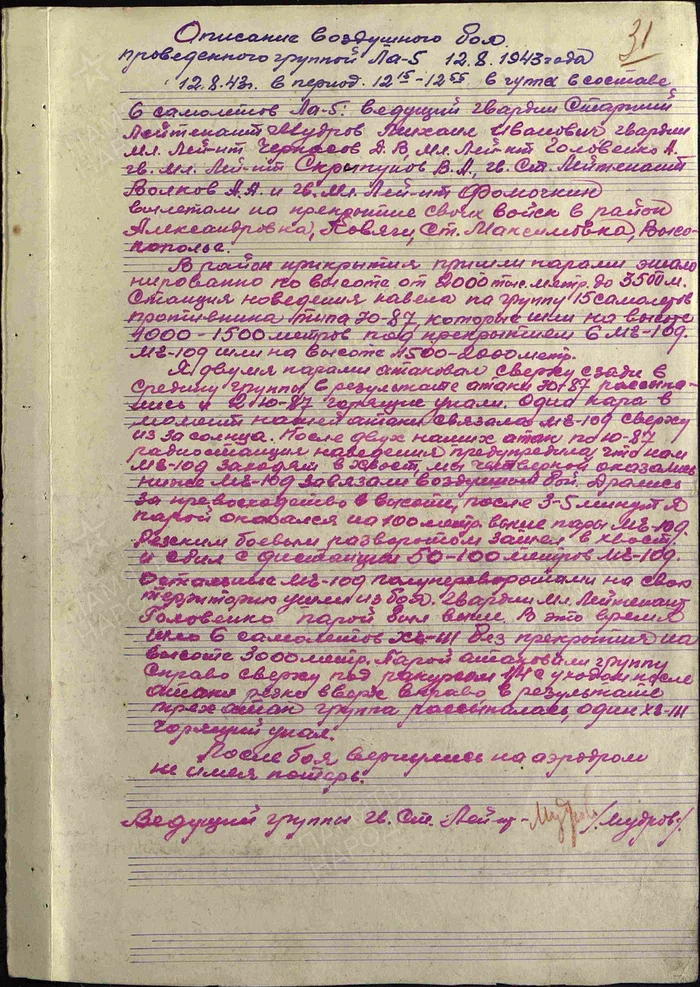 31
Описание воздушного боя
проведенного группой Ла-5 12.8.1943 года
12.8.43г. в период 12¹⁵-12⁵⁵ в группе в составе
6 самолетов Ла-5: ведущий гвардии Старший
Лейтенант Мудров Михаил Иванович гвардии
мл. Лей-нт Черкасов Д.В, мл. Лей-нт Головенко А.
гв. мл. Лей-нт Скрыпунов В.А., гв. Ст. Лейтенант
Волков А.А и гв. мл. Лей-нт Фомочкин
вылетали на прекрытие своих войск в район
Александровка, Ковяги, Ст. Максимовка, Высо-
кополье.
В район прикрытия пришли парами эшало
нированно по высоте от 2000 тыс. метр. до 3500 м.
Станция новедения навела на группу 15 самолетов
противника типа Ю-87, которые шли на высоте
4000-1500 метров под прекрытием 6 МЕ-109.
МЕ-109 шли на высоте 1500-2000 метр.
Я двумя парами атаковал сверху сзади в
средину группы, в результате атаки Ю-87 рассыпа-
лись и 2 Ю-87 горящие упали. Одна пара в
момент нашей атаки связала МЕ-109 сверху
из за солнца. После двух наших атак по Ю-87
радиостанция наведения предупредила, что нам
МЕ-109 заходят в хвост, мы четверкой оказались
ниже МЕ-109 завязали воздушный бой. Дрались
за превосходство в высоте, после 3-5 минут я
парой оказался на 100 метр. выше пары МЕ-109.
Резким боевым разворотом зашел в хвост
и сбил с дистанции 50-100 метров МЕ-109.
Остальные МЕ-109 полупереворотами на свою
территорию ушли из боя. Гвардии мл. Лейтенант
Головенко парой был выше. В это время
шло 6 самолетов ХЕ-111 без прекрытия на
высоте 3000 метр. Парой атаковали группу
справо сверху под ракурсом 1/4 с уходом после
атаки резко вверх вправо в результате
трех атак группа рассыпалась, один ХЕ-111
горящий упал.
После боя вернулись на аэродром
не имея потерь.
Ведущий группы гв. Ст. Лей-нт - Мудров /Мудров/.